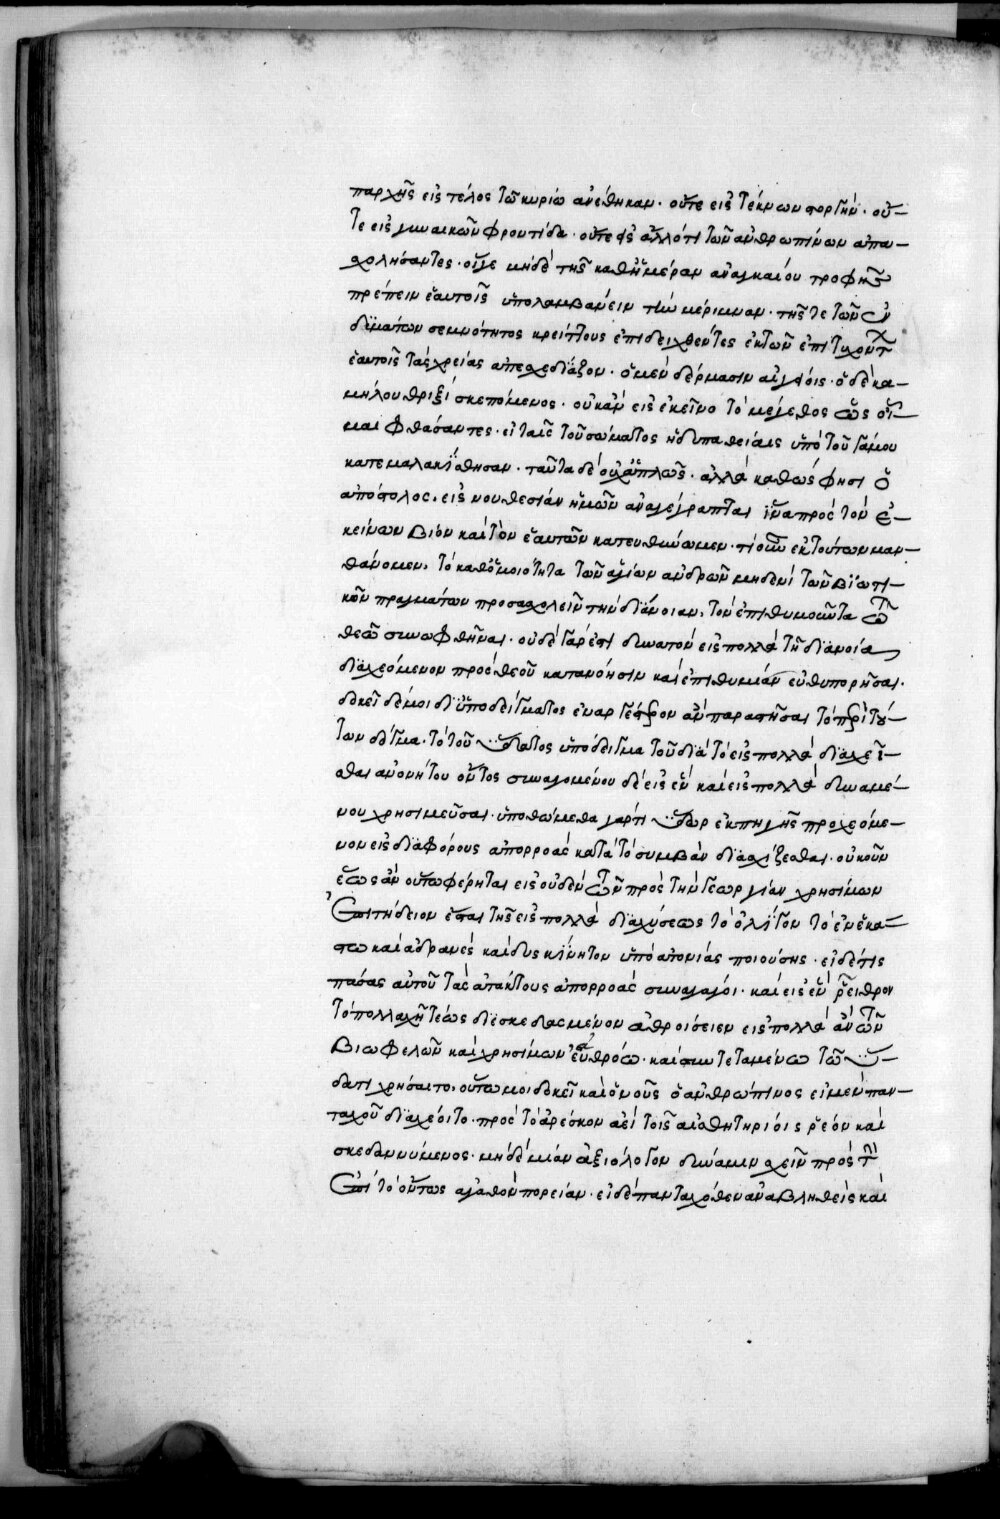 παρχῆς εἰς τέλος τῶ κυρίω ἀνέθηκαν· οὔτε εἰς τέκνων στοργὴν· οὔ-
τε εἰς γυναικῶν φροντίδα· οὔτε εἰς ἄλλό τι τῶν ἀνθρωπίνων ἀπα-
σχολήσαντες· οἵγε μηδὲ τῆς καθημέραν ἀναγκαίου τροφῆς
πρέπειν ἑαυτοῖς ὑπολαμβάνειν τὴν μέριμναν· τῆς τε τῶν ἐν
δυμάτων σεμνότητος κρείττους ἐπιδειχθέντες ἐκ τῶν ἐπιτυχόντ
ἑαυτοῖς τὰς χρείας ἀπεσχεδίαζον· ὁ μὲν δέρμασιν αἰγείοις· ὁ δὲ κα-
μήλου θριξὶ σκεπόμενος· οὐκ ἂν εἰς ἐκεῖνο τὸ μέγεθος ὡς οἶ-
μαι φθάσαντες· εἰ ταῖς τοῦ σώματος ἡδυπαθείαις ὑπὸ τοῦ γάμου
κατεμαλακίσθησαν· ταῦτα δὲ οὐχ ἁπλῶς· ἀλλὰ καθώς φησι ὁ
ἀπόστολος, εἰς νουθεσίαν ἡμῶν ἀναγέγραπται ἵνα πρὸς τὸν ἐ-
κείνων βίον καὶ τὸν ἑαυτῶν κατευθύνωμεν· τί οὖν ἐκ τούτων μαν-
θάνομεν, τὸ καθ ὁμοιότητα τῶν ἁγίων ἀνδρῶν μηδενὶ τῶν βιωτι-
κῶν πραγμάτων προσασχολεῖν τὴν διάνοιαν, τὸν ἐπιθυμοῦντα τῶ
θεῶ συναφθῆναι· οὐδὲ γάρ ἐστι δυνατὸν εἰς πολλὰ τῆ διανοία
διαχεόμενον πρὸς θεοῦ κατανόησιν καὶ ἐπιθυμίαν εὐθυπορῆσαι.
δοκεῖ δέ μοι δι ὑποδείγματος ἐναργέστερον ἂν παραστῆσαι τὸ περὶ τού-
των δόγμα· τὸ τοῦ ὕδατος ὑπόδειγμα τοῦ διὰ τὸ εἰς πολλὰ διαχεῖ-
σθαι ἀνονήτου ὄντος συναγομένου δὲ εἰς ἓν καὶ εἰς πολλὰ δυναμέ-
νου χρησιμεῦσαι· ὑποθώμεθα γάρ τι ὕδωρ ἐκ πηγῆς προχεόμε-
νον εἰς διαφόρους ἀπορροὰς κατὰ τὸ συμβὰν διασχίζεσθαι· οὐκοῦν
ἕως ἂν οὕτω φέρηται εἰς οὐδὲν τῶν πρὸς τὴν γεωργίαν χρησίμων
ἐπιτήδειον ἔσται τῆς εἰς πολλὰ διαχύσεως τὸ ὀλίγον τὸ ἐν ἑκά-
στω καὶ ἀδρανὲς καὶ δυσκίνητον ὑπὸ ἀτονίας ποιούσης· εἰ δέ τις
πάσας αὐτοῦ τὰς ἀτάκτους ἀπορροὰς συναγάγοι· καὶ εἰς ἓν ῥεῖθρον
τὸ πολλαχῆ τέως διεσκεδασμένον ἀθροίσειεν εἰς πολλὰ ἂν τῶν
βιωφελῶν καὶ χρησίμων εὐθρόω· καὶ συντεταμένω τῶ ὕ-
δατι χρήσαιτο, οὕτω μοι δοκεῖ καὶ ὁ νοῦς ὁ ἀνθρώπινος εἰ μὲν παν-
ταχοῦ διαχέοιτο· πρὸς τὸ ἀρέσκον ἀεὶ τοῖς αἰσθητηρίοις ῥέον καὶ
σκεδαννύμενος· μηδεμίαν ἀξιόλογον δύναμιν σχεῖν πρὸς τὴν
ἐπὶ τὸ ὄντως ἀγαθὸν πορείαν· εἰ δὲ πανταχόθεν ἀναβληθεὶς καὶ